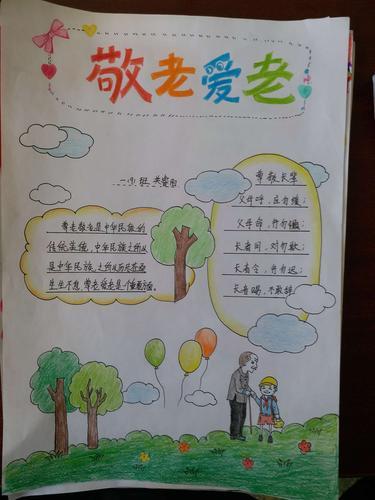 敬老爱老
一(1)班
尊敬长辈
父母呼，应勿缓；
父母命，行勿懒；
长者问，对勿欺；
长者令，行勿迟；
长者赐，不敢辞。
尊老敬老是中华民族的
传统美德，中华民族之所以
是中华民族，之所以历尽苍桑
生生不息，尊老爱老是个重要